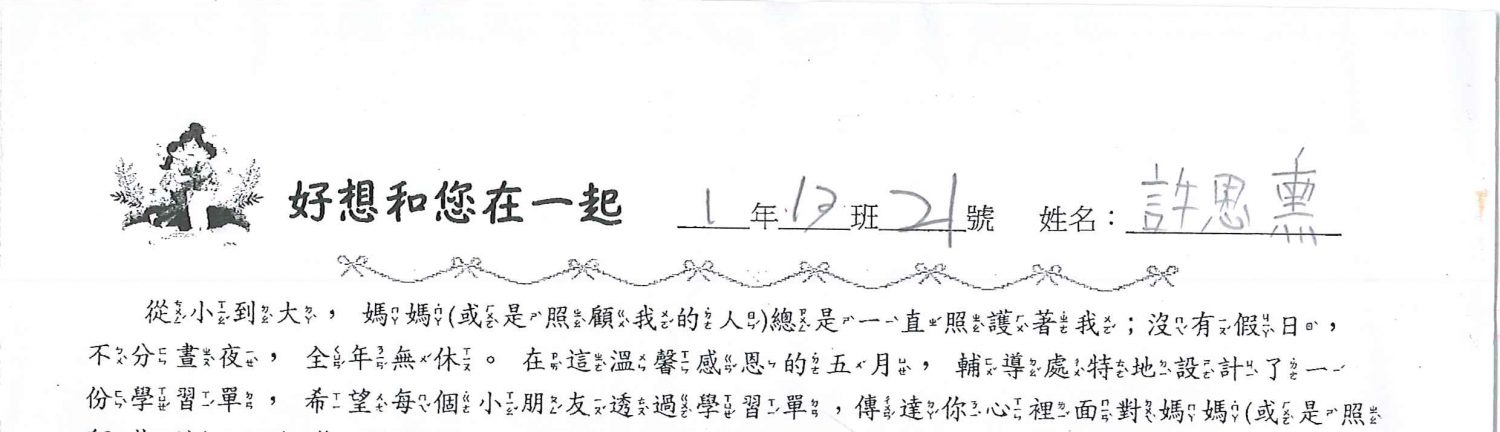 好想和您在一起 1年13班21號 姓名：許恩熏
從小到大，媽媽(或是照顧我的人)總是一直照護著我；沒有假日，
不分晝夜，全年無休。在這溫馨感恩的五月，輔導處特地設計了一
份學習單，希望每個小朋友透過學習單，傳達你心裡面對媽媽(或是照